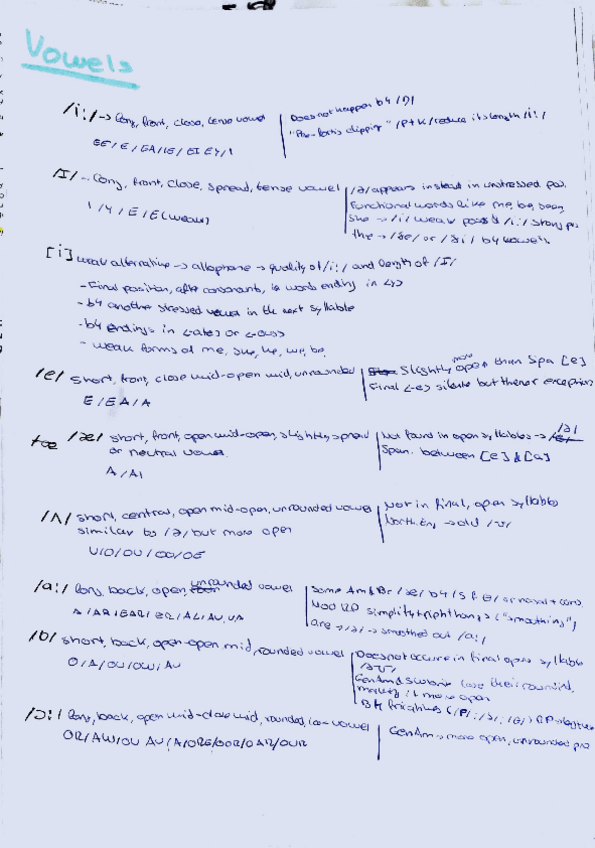 Vowels
/i:/ -> long, front, close, tense vowel
EE/E/EA/IE/EI EY/I
Does not happen b4 /ŋ/
"Pre-fortis clipping" /p t k/ reduce its length /i:/
/I/ - long, front, close, spread, tense vowel
I/Y/E/E(weak)
/ə/ appears instead in unstressed pos.
Functional words like me, be, been,
she -> /i/ weak pos & /i:/ strong pos
the -> /ðə/ or /ði/ b4 vowels
[i] weak alternative -> allophone -> quality of /i:/ and length of /I/
- Final position, after consonants, in words ending in <y>
- b4 another stressed vowel in the next syllable
- b4 endings in <-ate> or <-ous>
- weak forms of me, she, he, we, be.
/e/ short, front, close mid-open mid, unrounded
E/EA/A
Slightly more open than Spa [e]
Final <-e> silente but there r exceptions
/æ/ short, front, open mid-open, slightly spread
or neutral vowel.
A/AI
Not found in open syllables -> /ə/
Span. between [e] & [a]
/ʌ/ short, central, open mid-open, unrounded vowel
similar to /ə/ but more open
U/O/OU/OO/OE
Not in final, open syllables
North.Eng -> old /ʊ/
/a:/ long, back, open, unrounded vowel
A/AR/EAR/ER/AL/AU, UA
Some Am & Br /æ/ b4 /s f θ/ or nasal + cons.
Mod RP simplify triphthongs ("smoothing")
are -> /ə/ -> smoothed out /a:/
/ɒ/ short, back, open-open mid, rounded vowel
O/A/OU/OW/AU
Does not occure in final open syllable
GenAm
more open
/ɔ:/ long, back, open mid-close mid, rounded, vowel
OR/AW/OU AU/A/ORE/OOR/OAR/OUR
GenAm -> more open, unrounded